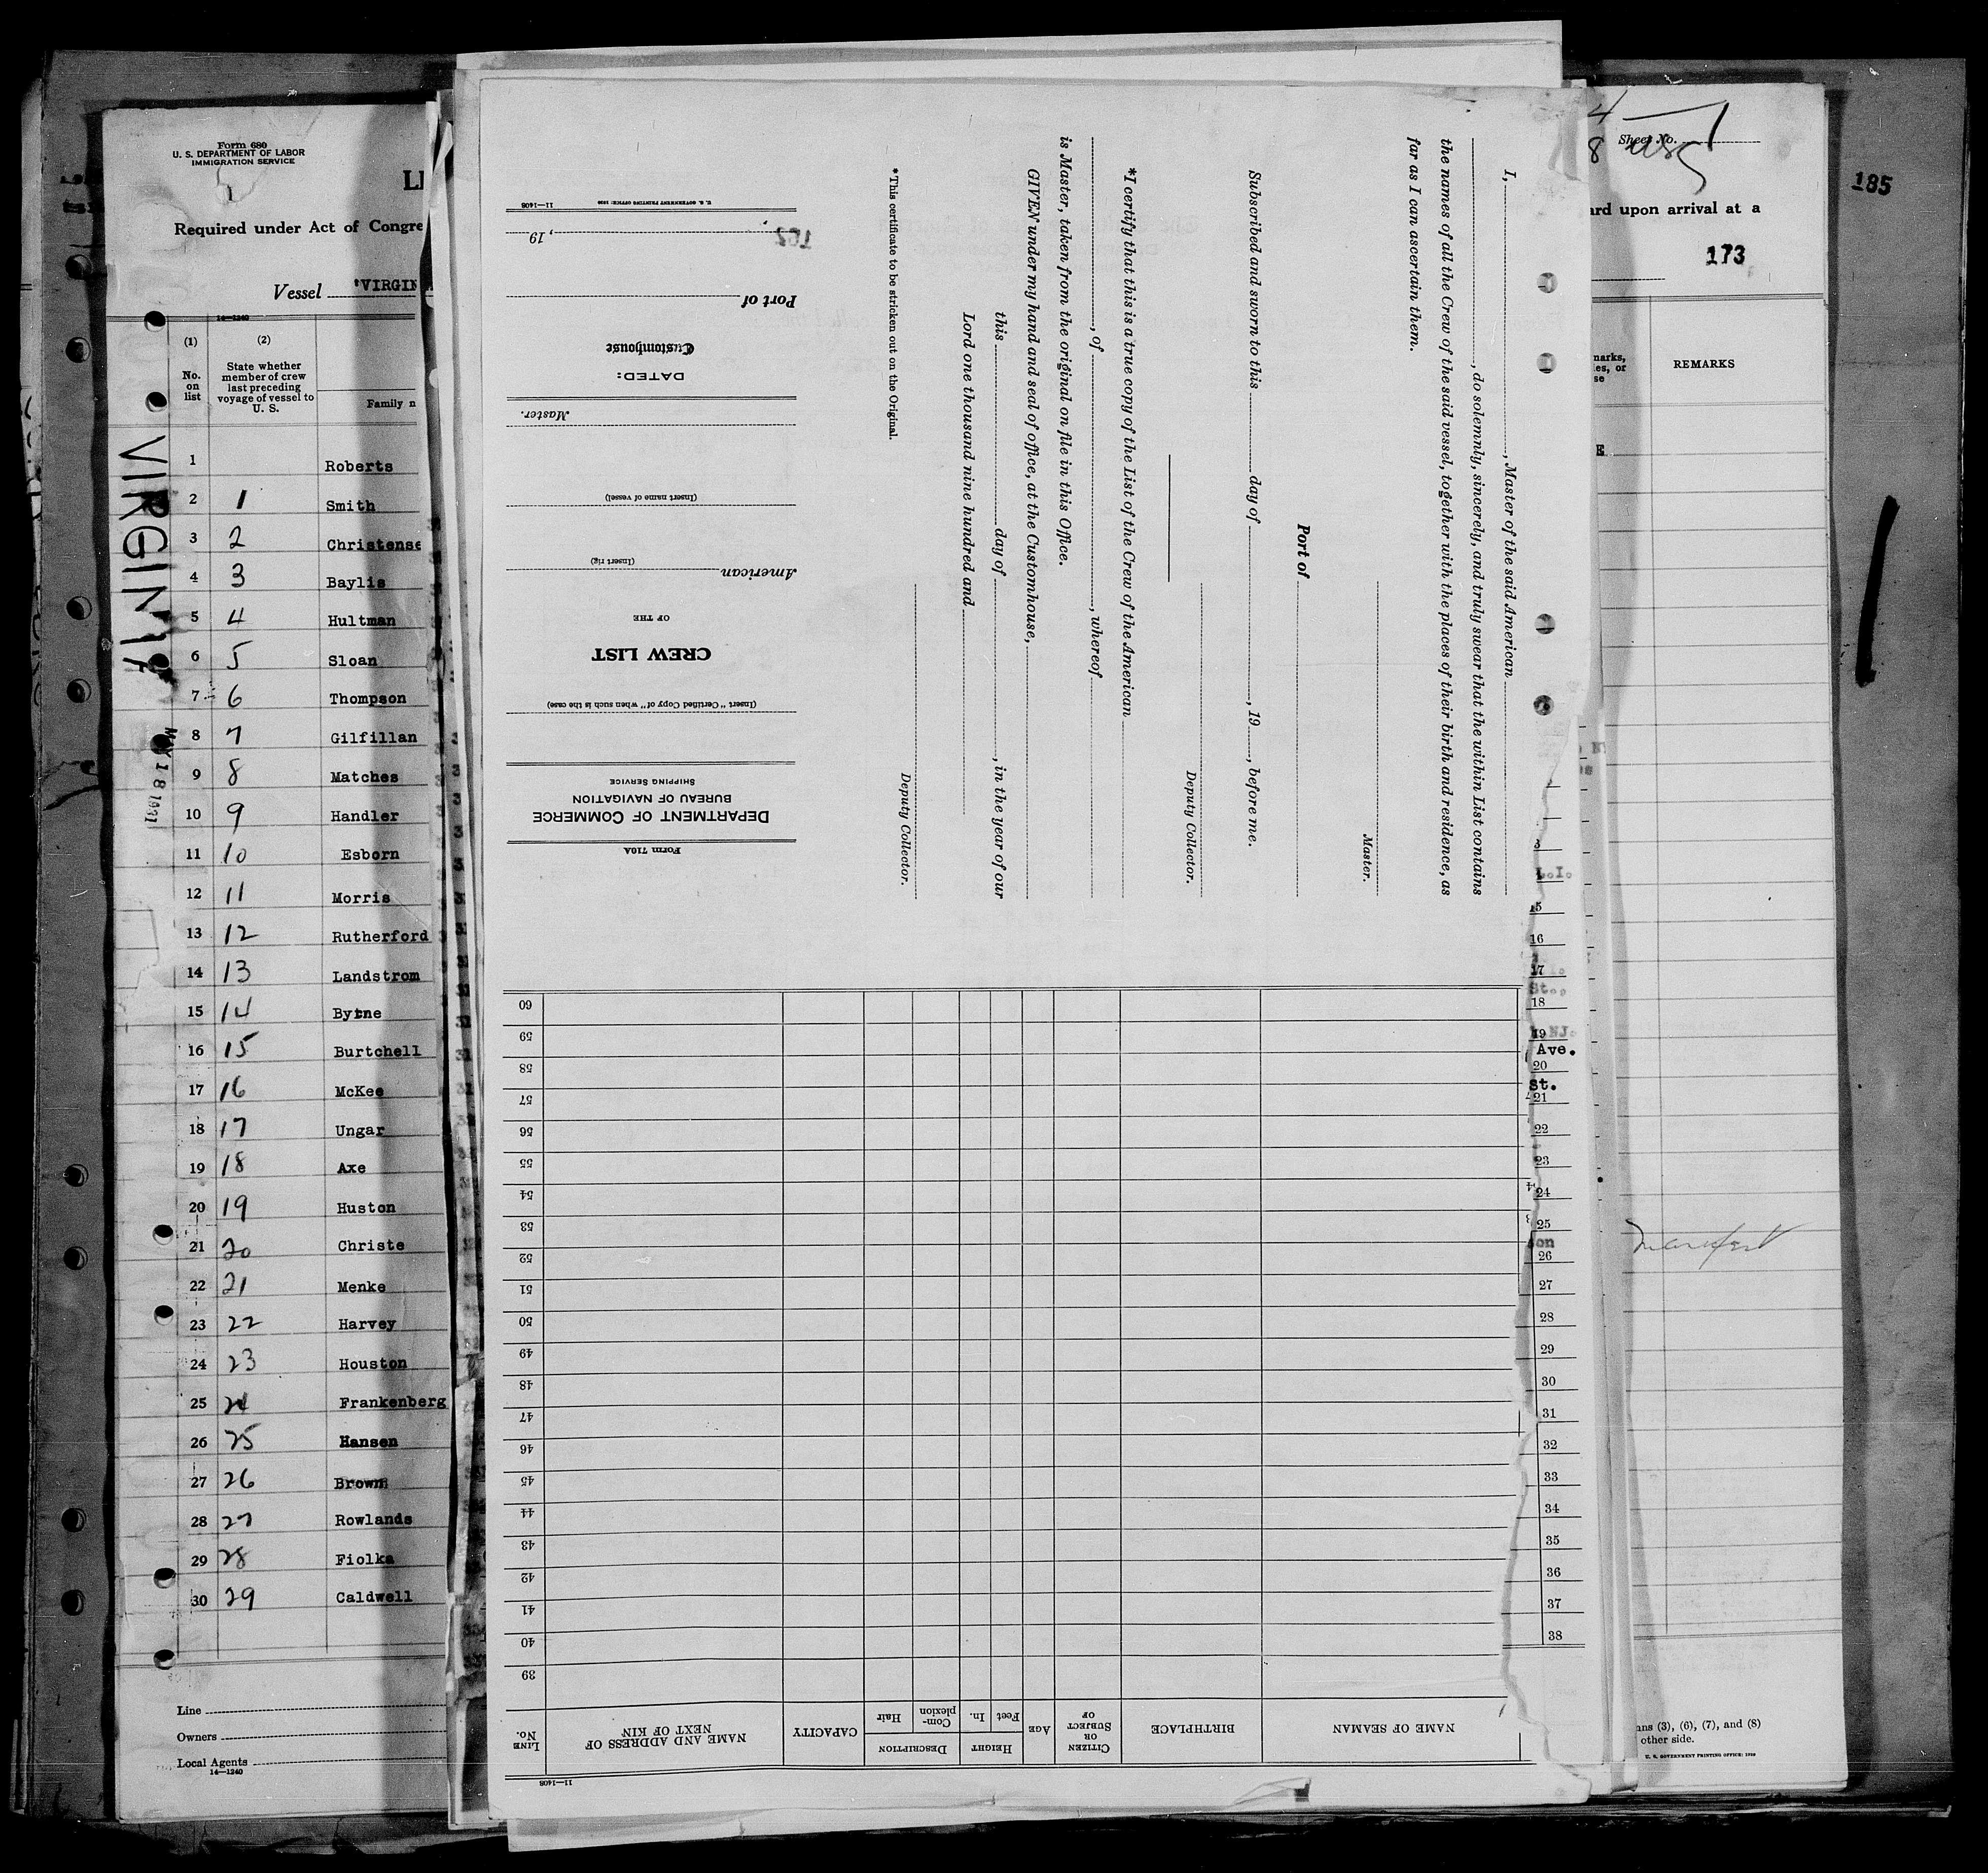 Form 680
U. S. DEPARTMENT OF LABOR
IMMIGRATION SERVICE
1
LI
Required under Act of Congre
Vessel "VIRGIN
14—1240
(1) No. on list
(2) State whether member of crew last preceding voyage of vessel to U. S.
Family n
VIRGINIA
MAY 18 1931
1 Roberts
2 1 Smith
3 2 Christense
4 3 Baylis
5 4 Hultman
6 5 Sloan
7 6 Thompson
8 7 Gilfillan
9 8 Matches
10 9 Handler
11 10 Esborn
12 11 Morris
13 12 Rutherford
14 13 Landstrom
15 14 Byrne
16 15 Burtchell
17 16 McKee
18 17 Ungar
19 18 Axe
20 19 Huston
21 20 Christe
22 21 Menke
23 22 Harvey
24 23 Houston
25 24 Frankenberg
26 25 Hansen
27 26 Brown
28 27 Rowlands
29 28 Fiolka
30 29 Caldwell
Line
Owners
Local Agents
14—1240
Form 710A
DEPARTMENT OF COMMERCE
BUREAU OF NAVIGATION
SHIPPING SERVICE
(Insert "Certified Copy of" when such is the case)
CREW LIST
OF THE
American
(Insert rig)
(Insert name of vessel)
Master.
DATED:
Customhouse
Port of
, 19
11—1408 U. S. GOVERNMENT PRINTING OFFICE: 1930
I, , Master of the said American
, do solemnly, sincerely, and truly swear that the within List contains
the names of all the Crew of the said vessel, together with the places of their birth and residence, as
far as I can ascertain them.
Master.
Port of
Subscribed and sworn to this day of , 19 , before me.
Deputy Collector.
*I certify that this is a true copy of the List of the Crew of the American
, of , whereof
is Master, taken from the original on file in this Office.
GIVEN under my hand and seal of office, at the Customhouse,
this day of , in the year of our
Lord one thousand nine hundred and
Deputy Collector.
*This certificate to be stricken out on the Original.
60
59
58
57
56
55
54
53
52
51
50
49
48
47
46
45
44
43
42
41
40
39
LINE No.
NAME AND ADDRESS OF NEXT OF KIN
CAPACITY
DESCRIPTION
Hair
Com-plexion
HEIGHT
In.
Feet
AGE
CITIZEN OR SUBJECT OF
BIRTHPLACE
NAME OF SEAMAN
11—1408
L.I.
15
16
17
St.,
18
19 NJ.
Ave.
20
St.
21
22
23
24
25
son
26
27
28
29
30
31
32
33
34
35
36
37
38
Sheet No. 1
185
ard upon arrival at a
173
REMARKS
E
ns (3), (6), (7), and (8)
other side.
U. S. GOVERNMENT PRINTING OFFICE: 1930